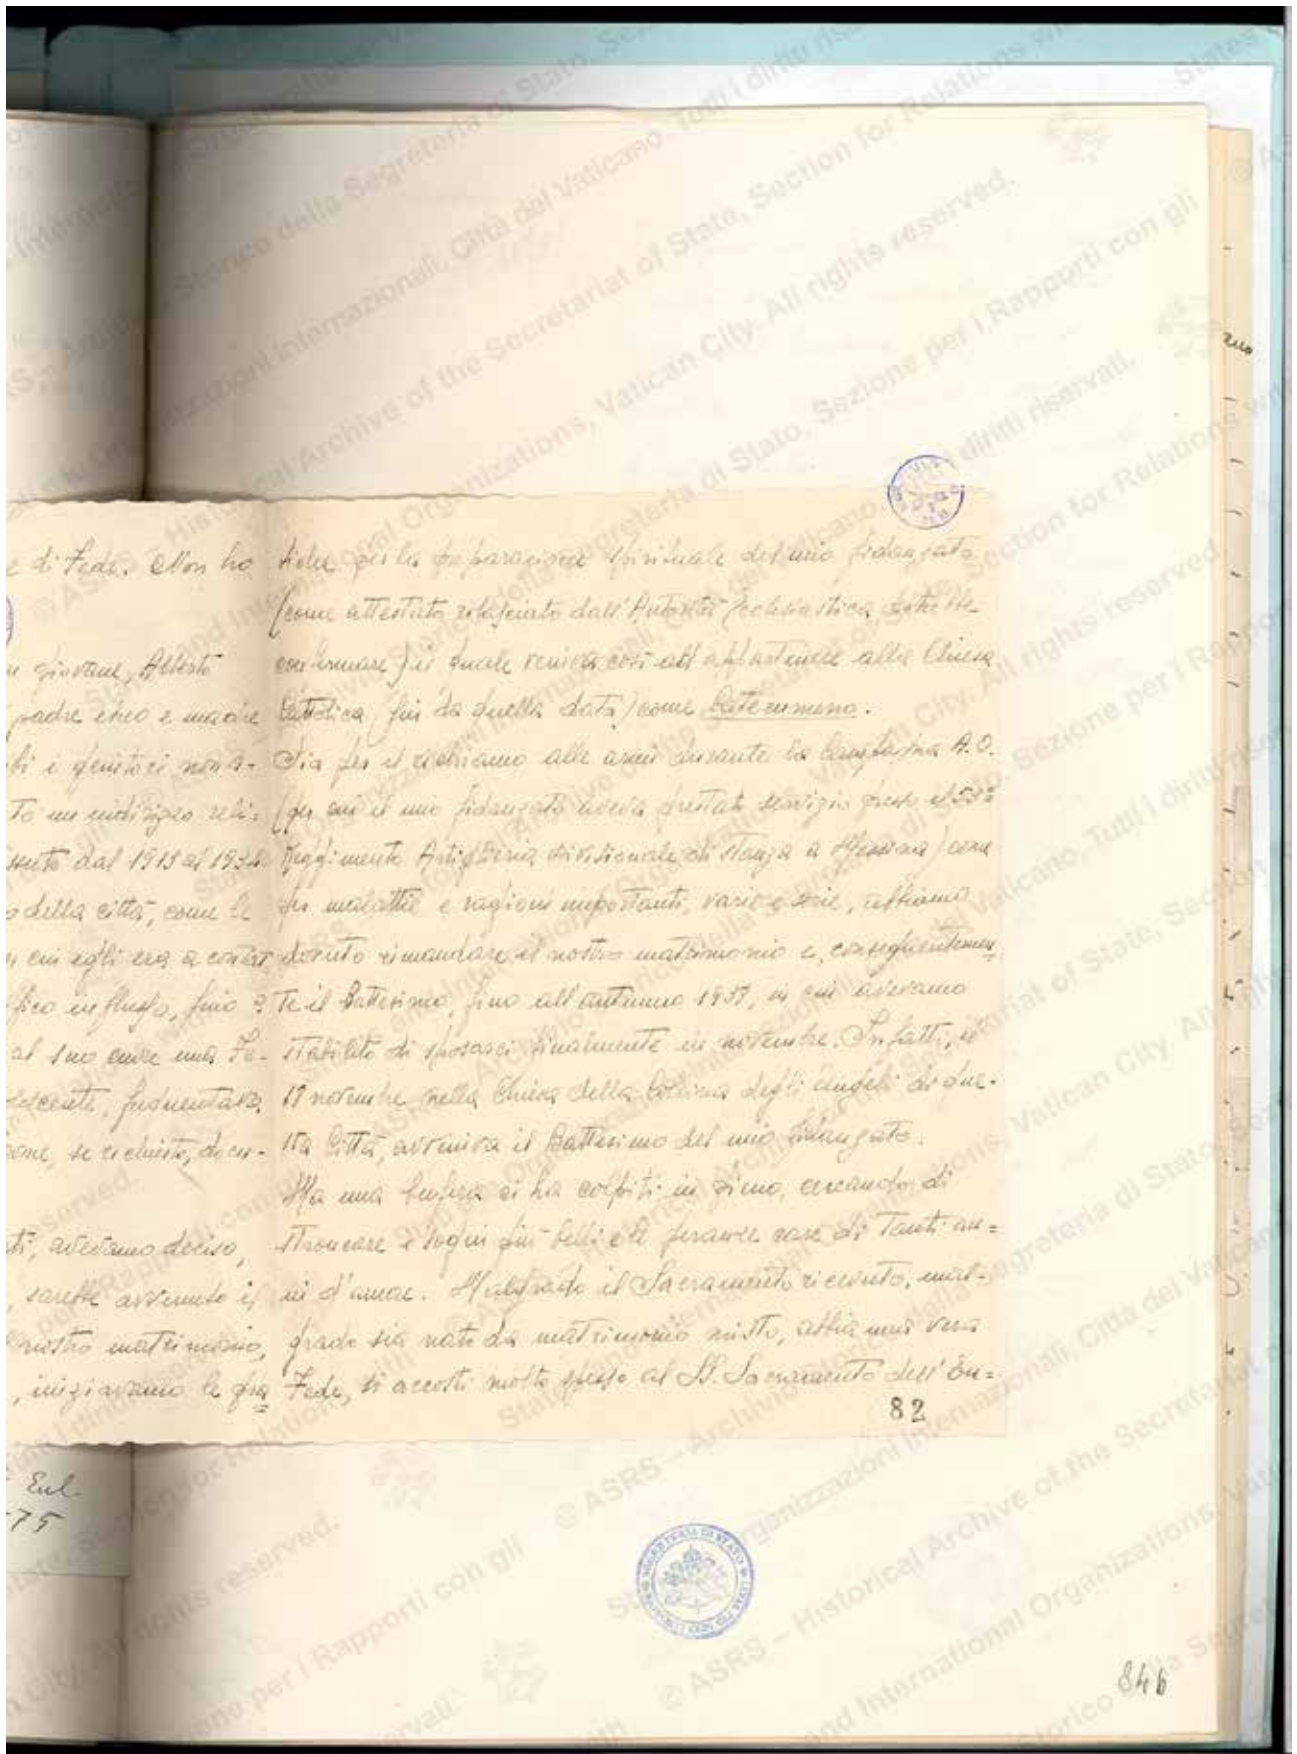 e di Fede. Non ho
n giovane, Alberto
padre ebreo e madre
bi i genitori non a-
to un indirizzo reli-
ssuto dal 1913 al 1932
o della città, come le
n cui egli era a contat
fico influsso, fino a
al suo cuore una Fe-
frequentava
ome, se richiesto, docu-
ti, avevamo deciso,
, sarebbe avvenuto il
nostro matrimonio,
, iniziavamo le pra
tiche per la preparazione spirituale del mio fidanzato
(come attestato rilasciato dall'Autorità Ecclesiastica potrebbe
confermare) il quale veniva così ad appartenere alla Chiesa
Cattolica, fin da quella data, come Catecumeno.
Sia per il richiamo alle armi durante la Campagna A.O.
(per cui il mio fidanzato aveva prestato servizio presso il
Reggimento Artiglieria divisionale di stanza a Messina) come
per malattie e ragioni importanti, varie e serie, abbiamo
dovuto rimandare il nostro matrimonio e, conseguentemen
te il Battesimo, fino all'autunno 1938, in cui avevamo
stabilito di sposarci finalmente in novembre. Infatti, il
novembre nella Chiesa della Collina degli Angeli di que-
sta Città, avveniva il Battesimo del mio fidanzato.
Ma una bufera ci ha colpiti in pieno, cercando di
stroncare i sogni più belli e le speranze care di tanti an=
ni d'amore. Malgrado il Sacramento ricevuto, mal-
grado sia nato da matrimonio misto, abbia una vera
Fede, si accosti molto spesso al SS. Sacramento dell'Eu=
82
Eul.
75
SEGRETERIA DI STATO
84b
© ASRS – Archivio Storico della Segreteria di Stato, Sezione per i Rapporti con gli Stati e le Organizzazioni Internazionali, Città del Vaticano. Tutti i diritti riservati.
© ASRS – Historical Archive of the Secretariat of State, Section for Relations with States and International Organizations, Vatican City. All rights reserved.